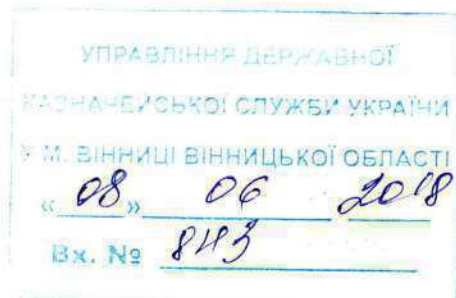 УПРАВЛІННЯ ДЕРЖАВНОЇ
КАЗНАЧЕЙСЬКОЇ СЛУЖБИ УКРАЇНИ
У М. ВІННИЦІ ВІННИЦЬКОЇ ОБЛАСТІ
«08» 06 2018
Вх. № 843